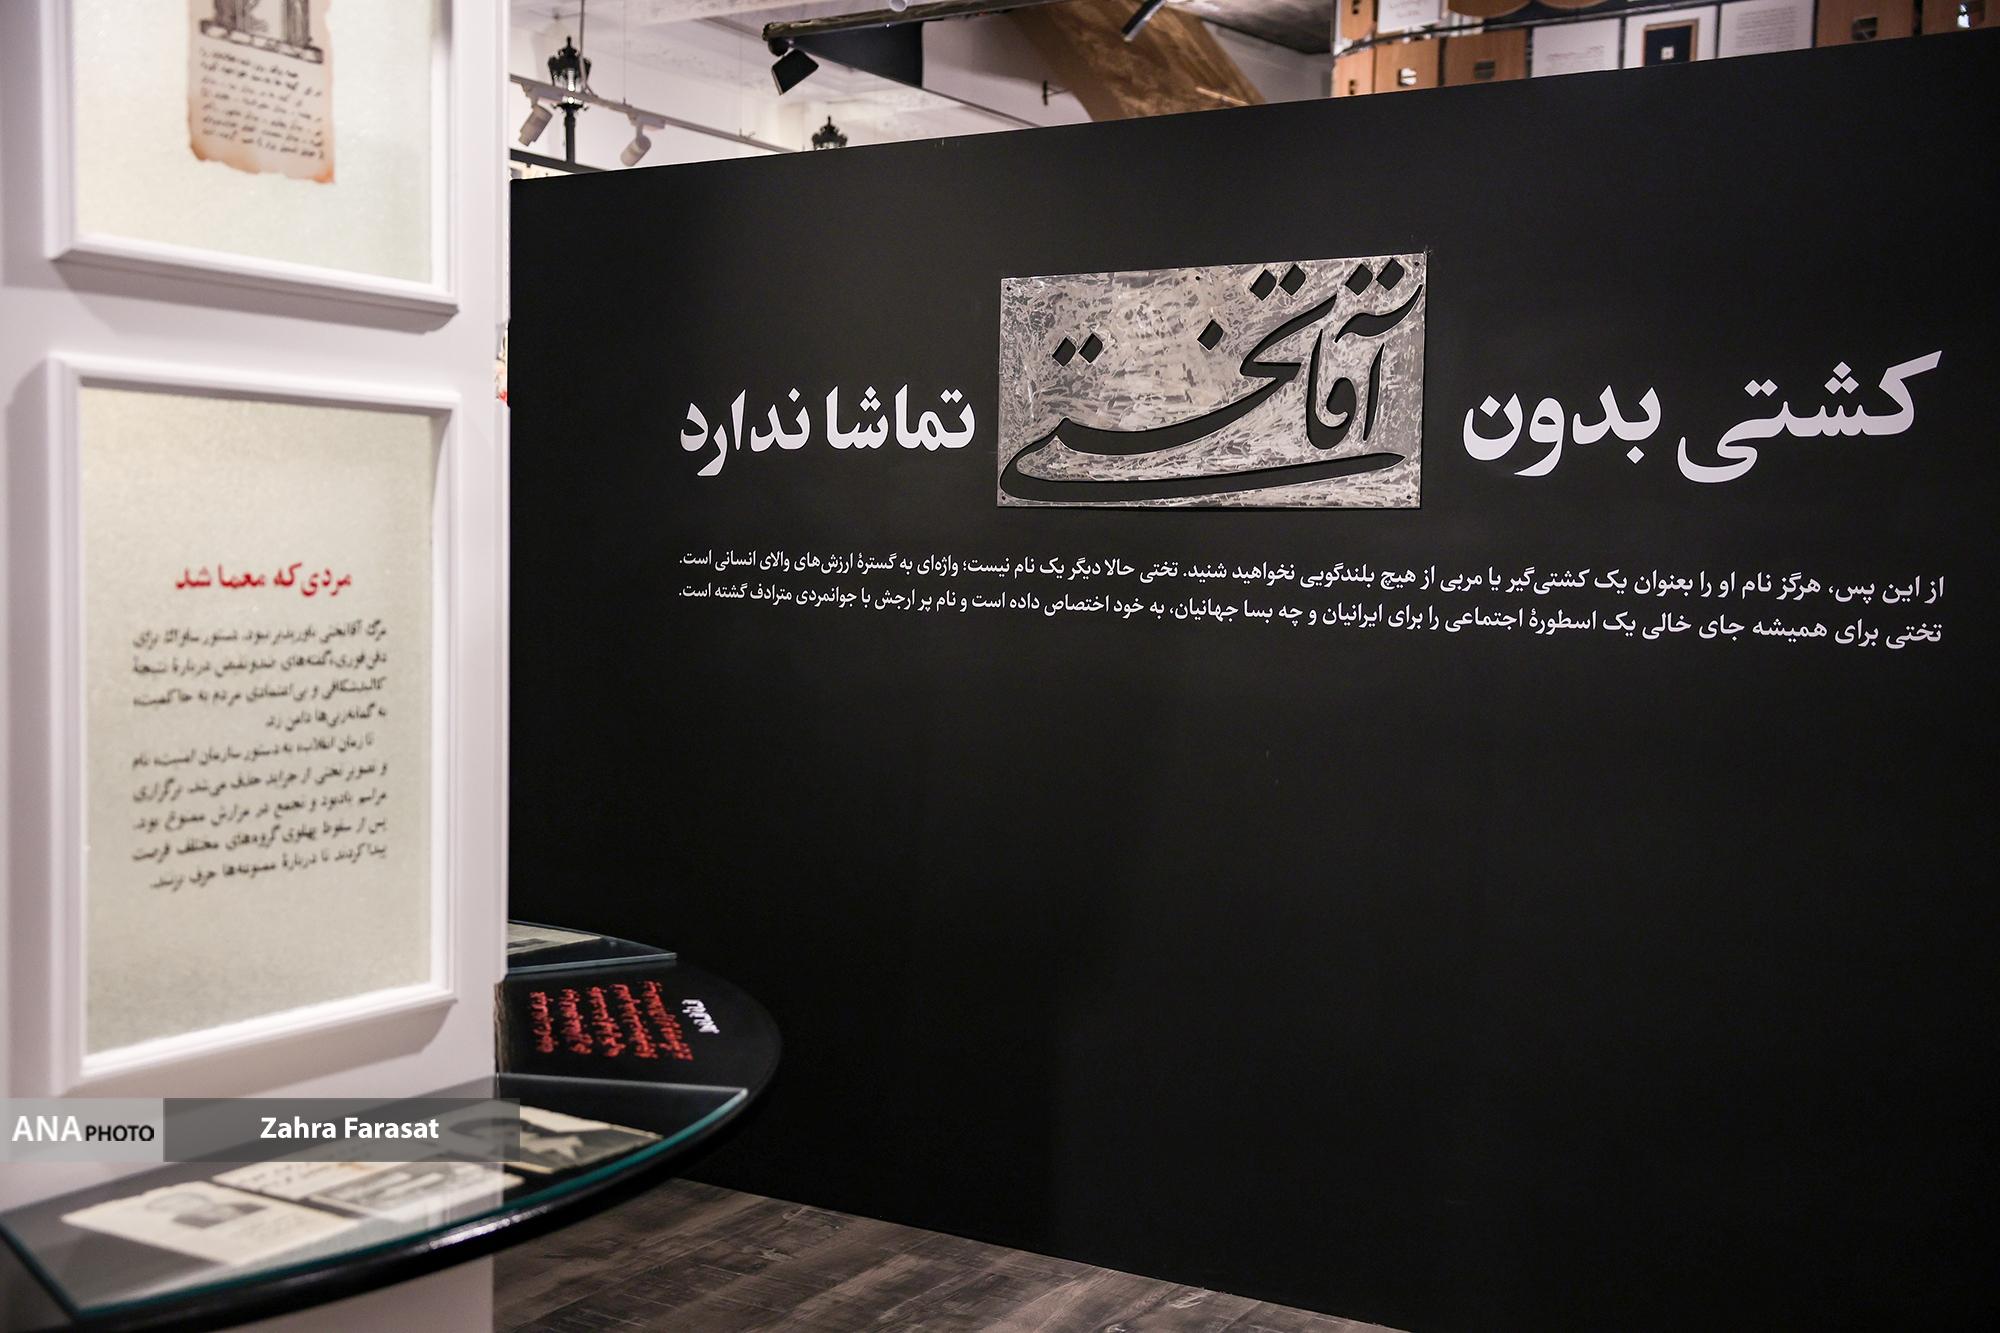 کشتی بدون آقاتختی تماشا ندارد
از این پس، هرگز نام او را بعنوان یک کشتی‌گیر یا مربی از هیچ بلندگویی نخواهید شنید. تختی حالا دیگر یک نام نیست؛ واژه‌ای به گسترهٔ ارزش‌های والای انسانی است.
تختی برای همیشه جای خالی یک اسطورهٔ اجتماعی را برای ایرانیان و چه بسا جهانیان، به خود اختصاص داده است و نام پر ارجش با جوانمردی مترادف گشته است.
مردی که معما شد
مرگ آقاتختی باورپذیر نبود. دستور ساواک برای
دفن فوری، گفته‌های ضدونقیض دربارهٔ نتیجهٔ
کالبدشکافی و بی‌اعتمادی مردم به حاکمیت،
به گمانه‌زنی‌ها دامن زد.
تا زمان انقلاب، به دستور سازمان امنیت، نام
و تصویر تختی از جراید حذف می‌شد. برگزاری
مراسم یادبود و تجمع در مزارش ممنوع بود.
پس از سقوط پهلوی گروه‌های مختلف فرصت
پیدا کردند تا دربارهٔ ممنوعه‌ها حرف بزنند.
ANA PHOTO
Zahra Farasat